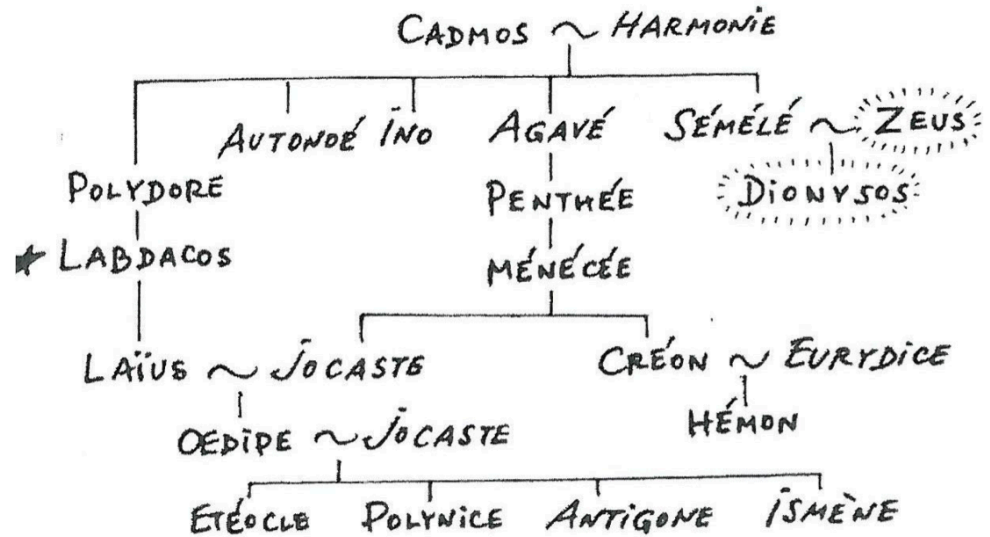 CADMOS ~ HARMONIE
AUTONOÉ INO AGAVÉ SÉMÉLÉ ~ ZEUS
POLYDORE PENTHÉE DIONYSOS
★ LABDACOS MÉNÉCÉE
LAÏUS ~ JOCASTE CRÉON ~ EURYDICE
OEDIPE ~ JOCASTE HÉMON
ETÉOCLE POLYNICE ANTIGONE ISMÈNE